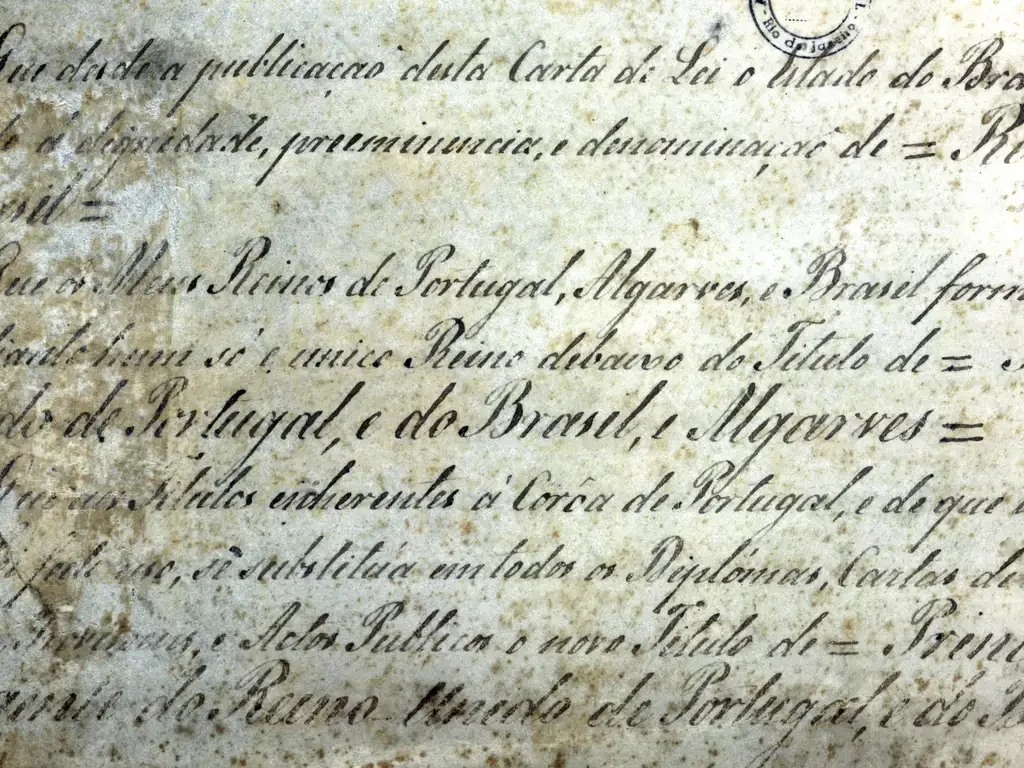 Rio de Janeiro
Que desde a publicação desta Carta de Lei o Estado do Bra
á dignidade, preeminencia, e denominação de =
sil =
Que os Meus Reinos de Portugal, Algarves, e Brasil form
hum só e unico Reino debaixo do Titulo de =
do de Portugal, e do Brasil, e Algarves =
Que aos titulos inherentes á Corôa de Portugal, e de que
uso, se substitúa em todos os Diplómas, Cartas de
e Actos Publicos o novo Titulo de = Princ
do Reino Unido de Portugal, e do B